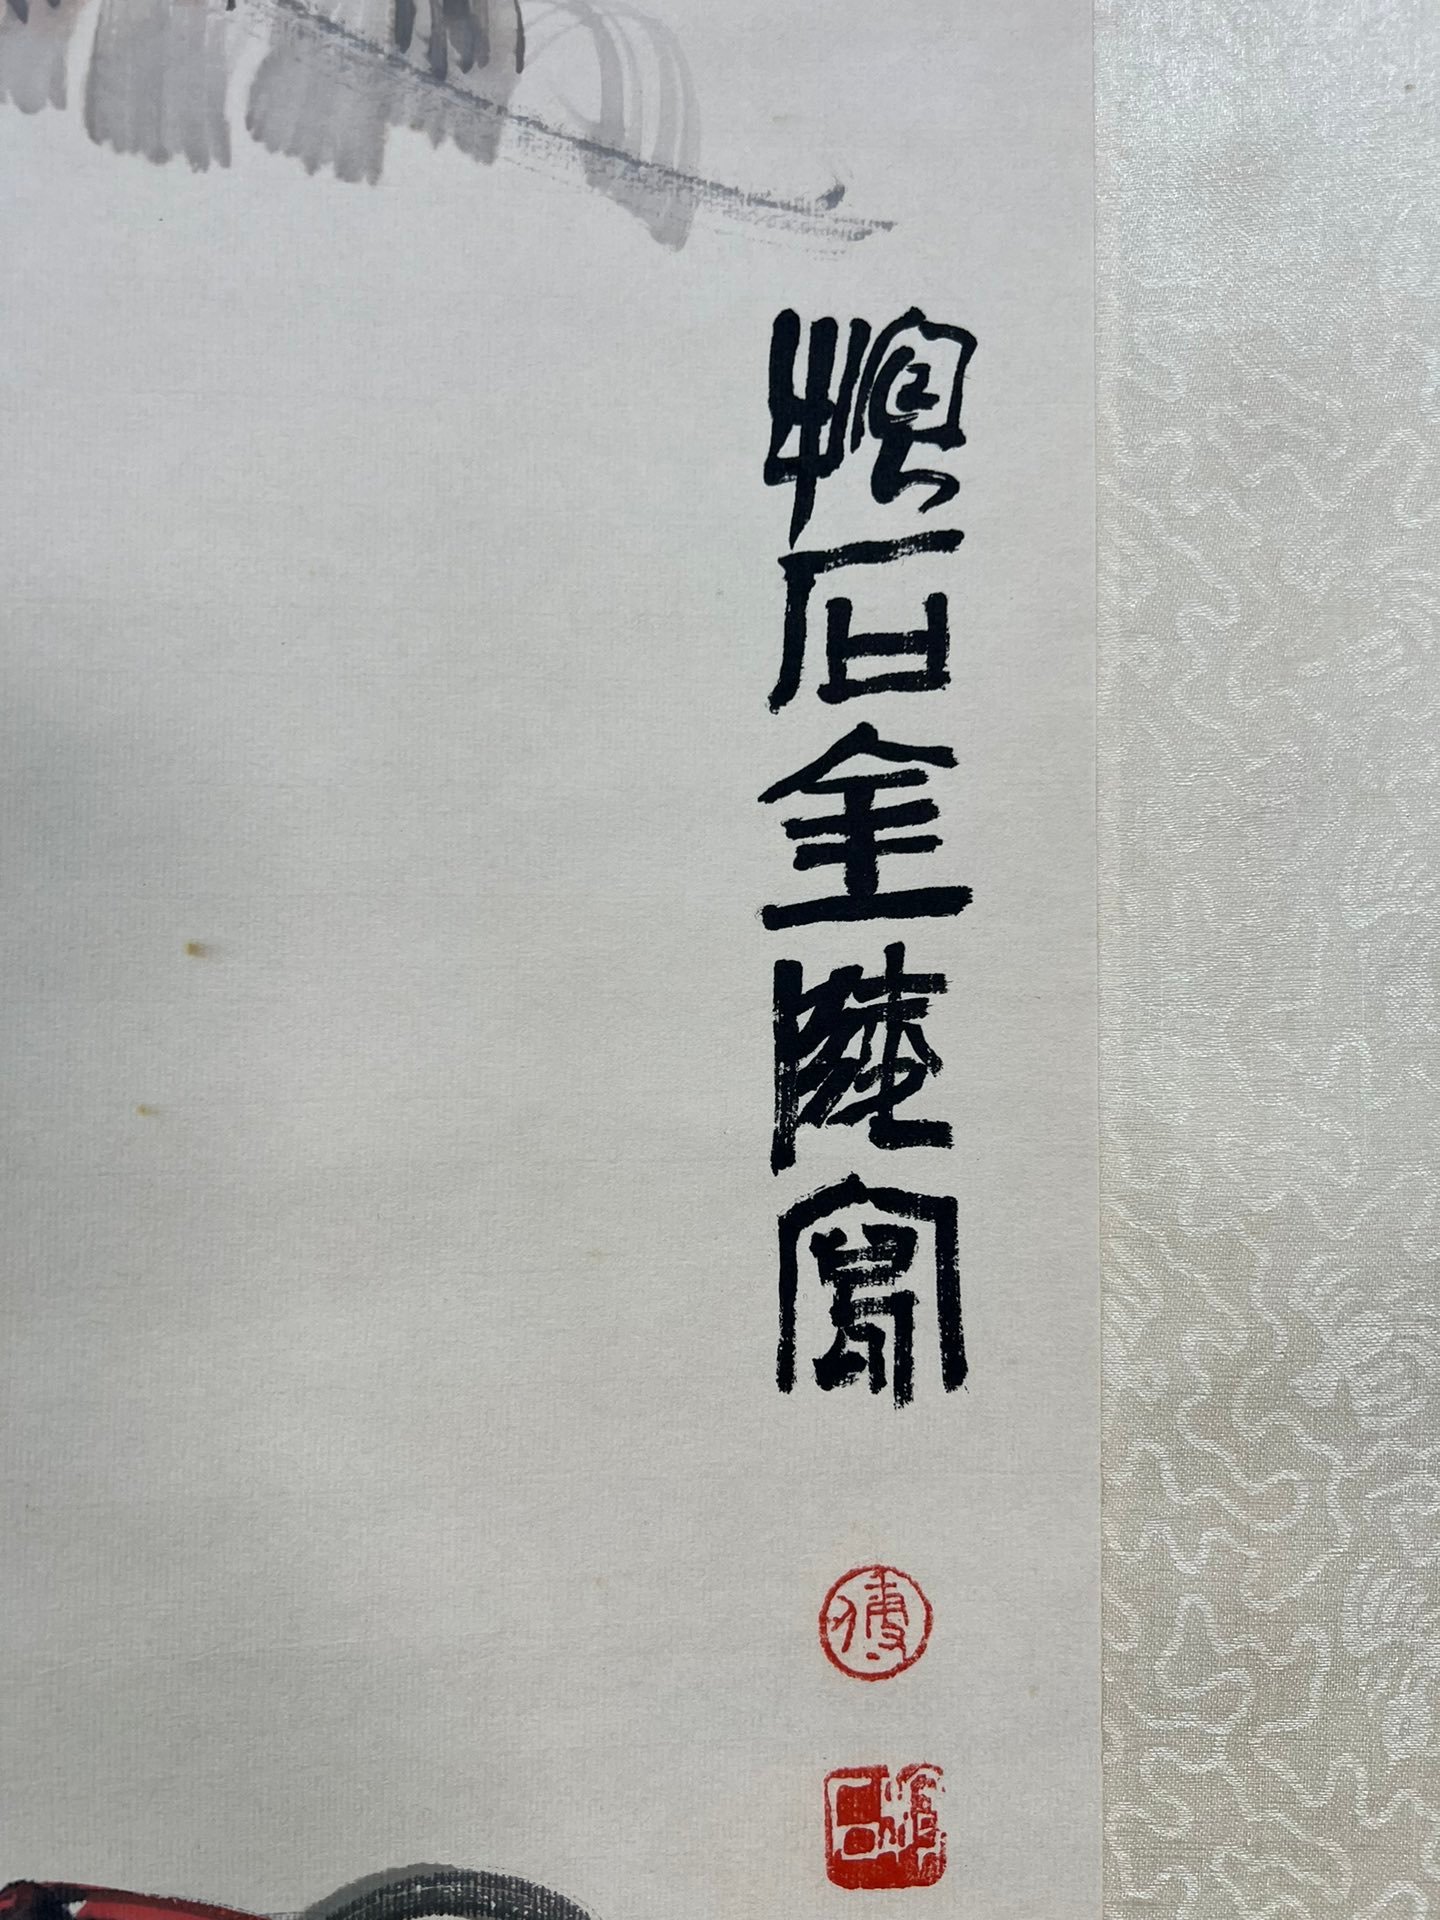 抱石金陵寫
傅